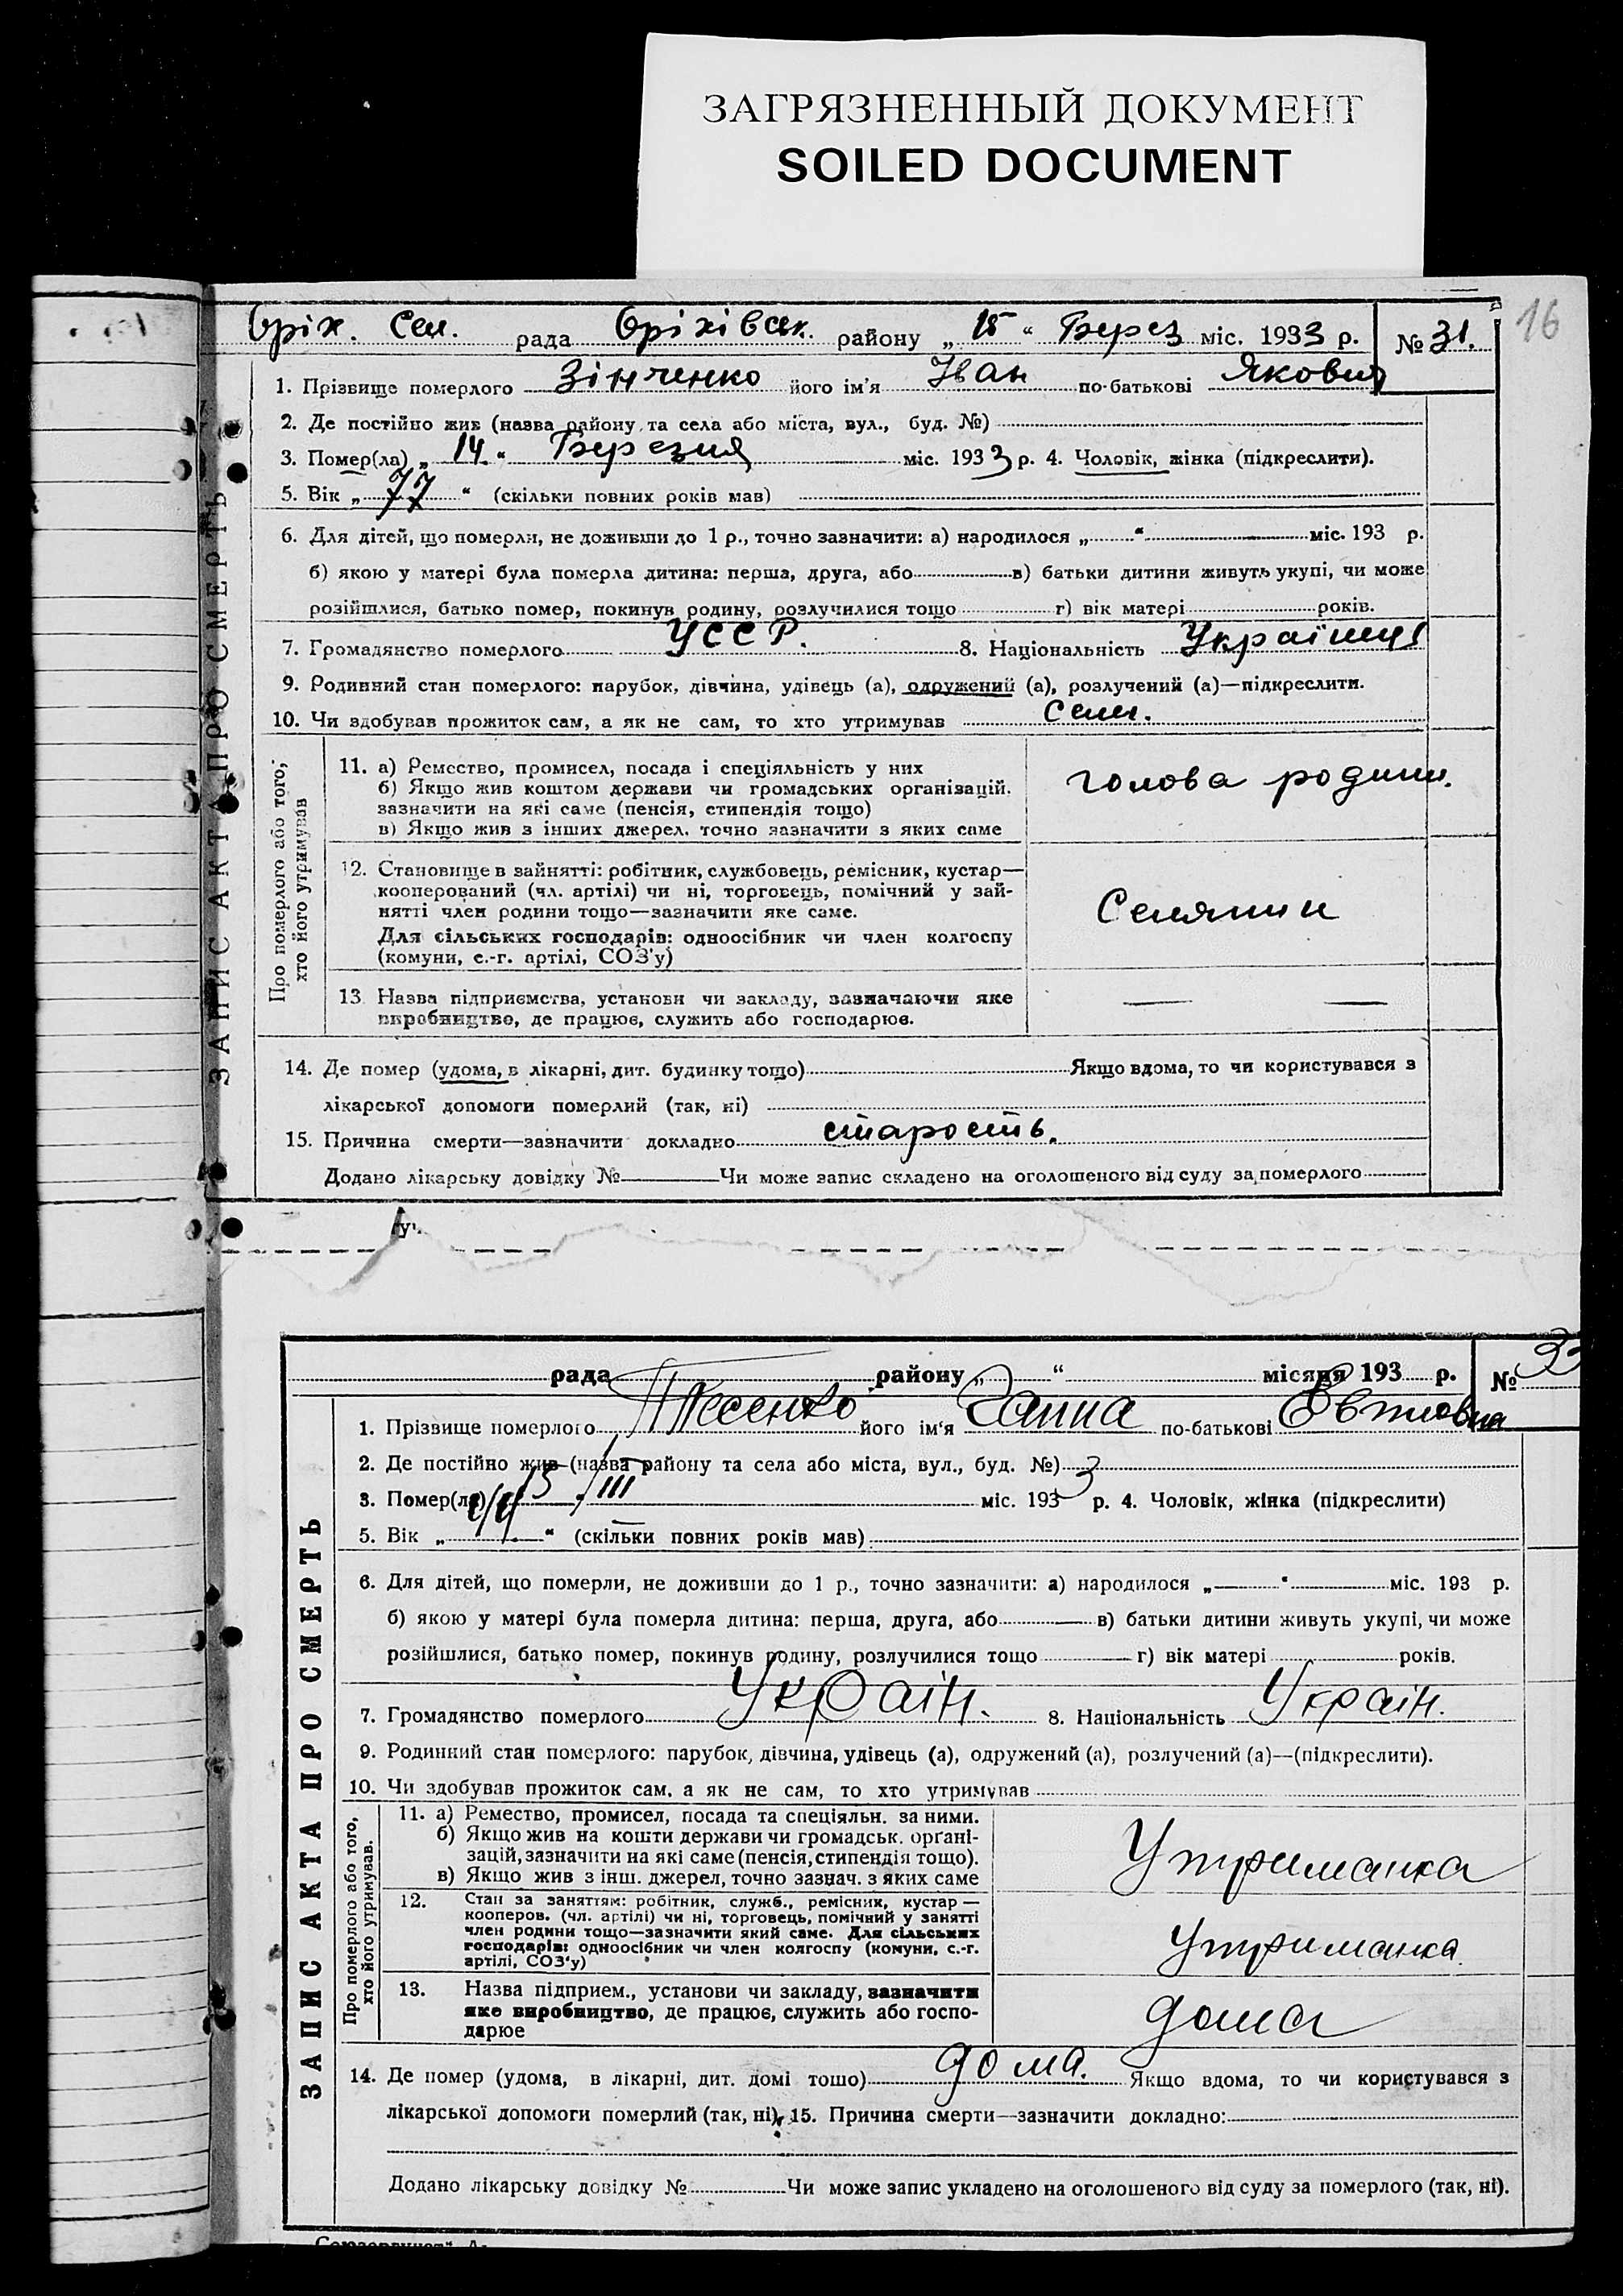 ЗАГРЯЗНЕННЫЙ ДОКУМЕНТ
SOILED DOCUMENT
16
Оріх. Сел. рада Оріхівськ. району „ 15 “ Берез міс. 1933 р. № 31.
1. Прізвище померлого Зінченко його ім'я Іван по-батькові Якович
2. Де постійно жив (назва району та села або міста, вул., буд. №)
3. Помер(ла) „ 14 “ Березня міс. 1933 р. 4. Чоловік, жінка (підкреслити).
5. Вік „ 77 “ (скільки повних років мав)
6. Для дітей, що померли, не доживши до 1 р., точно зазначити: а) народилося „ “ міс. 193 р.
б) якою у матері була померла дитина: перша, друга, або в) батьки дитини живуть укупі, чи може
розійшлися, батько помер, покинув родину, розлучилися тощо г) вік матері років.
7. Громадянство померлого УССР. 8. Національність Українці
9. Родинний стан померлого: парубок, дівчина, удівець (а), одружений (а), розлучений (а)—підкреслити.
10. Чи здобував прожиток сам, а як не сам, то хто утримував
ЗАПИС АКТА ПРО СМЕРТЬ
Про померлого або того, хто його утримував
11. а) Ремество, промисел, посада і спеціяльність у них
б) Якщо жив коштом держави чи громадських організацій.
зазначити на які саме (пенсія, стипендія тощо)
в) Якщо жив з інших джерел, точно зазначити з яких саме
голова родини.
12. Становище в зайнятті: робітник, службовець, ремісник, кустар—
кооперований (чл. артілі) чи ні, торговець, помічний у зай-
нятті член родини тощо—зазначити яке саме.
Для сільських господарів: одноосібник чи член колгоспу
(комуни, с.-г. артілі, СОЗ'у)
Селянин
13. Назва підприємства, установи чи закладу, зазначаючи яке
виробництво, де працює, служить або господарює.
— —
14. Де помер (удома, в лікарні, дит. будинку тощо) Якщо вдома, то чи користувався з
лікарської допомоги померлий (так, ні)
15. Причина смерти—зазначити докладно старость.
Додано лікарську довідку № Чи може запис складено на оголошеного від суду за померлого
рада району „ “ місяця 193 р. №
1. Прізвище померлого його ім'я Ганна по-батькові
2. Де постійно жив (назва району та села або міста, вул., буд. №)
3. Помер(ла) 15/III міс. 1933 р. 4. Чоловік, жінка (підкреслити)
5. Вік „ “ (скільки повних років мав)
6. Для дітей, що померли, не доживши до 1 р., точно зазначити: а) народилося „ “ міс. 193 р.
б) якою у матері була померла дитина: перша, друга, або в) батьки дитини живуть укупі, чи може
розійшлися, батько помер, покинув родину, розлучилися тощо г) вік матері років.
7. Громадянство померлого Україн. 8. Національність Україн.
9. Родинний стан померлого: парубок, дівчина, удівець (а), одружений (а), розлучений (а)—(підкреслити).
10. Чи здобував прожиток сам, а як не сам, то хто утримував
ЗАПИС АКТА ПРО СМЕРТЬ
Про померлого або того, хто його утримував.
11. а) Ремество, промисел, посада та спеціяльн. за ними.
б) Якщо жив на кошти держави чи громадськ. органі-
зацій, зазначити на які саме (пенсія, стипендія тощо).
в) Якщо жив з інш. джерел, точно зазнач. з яких саме
Утриманка
12. Стан за заняттям: робітник, служб., ремісник, кустар —
кооперов. (чл. артілі) чи ні, торговець, помічний у занятті
член родини тощо—зазначити який саме. Для сільських
господарів: одноосібник чи член колгоспу (комуни, с.-г.
артілі, СОЗ'у)
Утриманка
13. Назва підприєм., установи чи закладу, зазначити
яке виробництво, де працює, служить або госпо-
дарює
дома
14. Де помер (удома, в лікарні, дит. домі тощо) дома. Якщо вдома, то чи користувався з
лікарської допомоги померлий (так, ні). 15. Причина смерти—зазначити докладно:
Додано лікарську довідку № Чи може запис укладено на оголошеного від суду за померлого (так, ні).